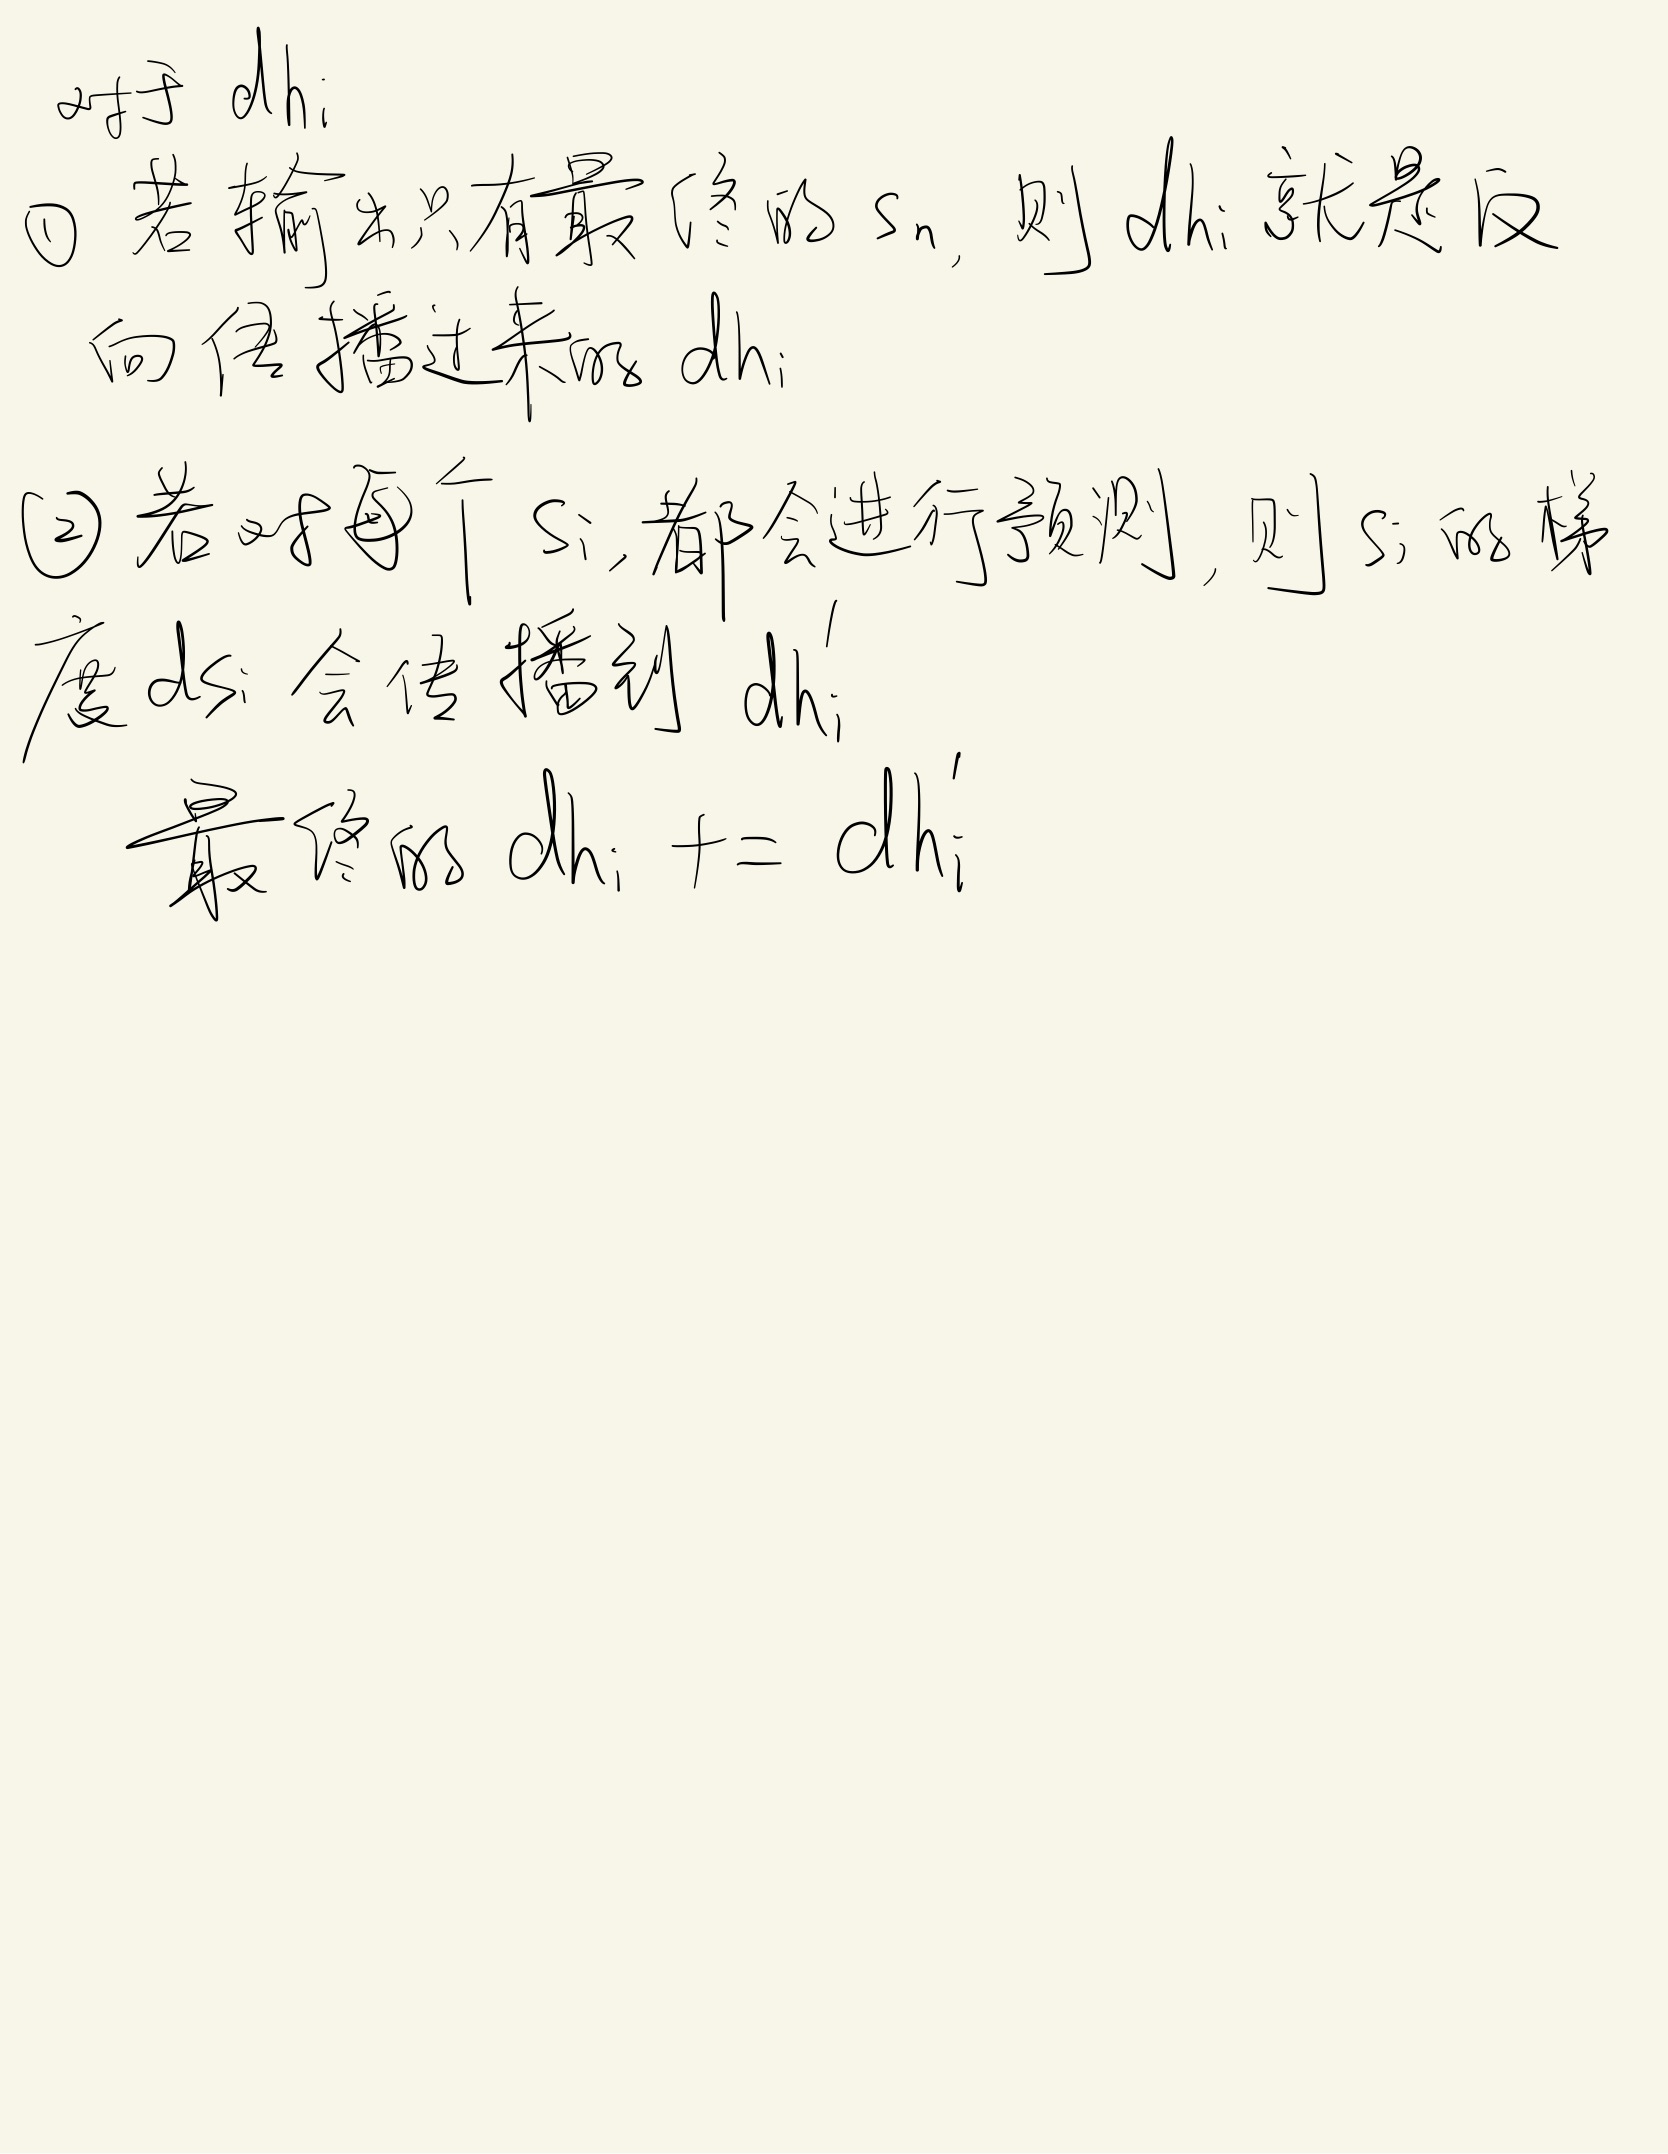 对于 dhi
① 若输出只有最终的 sn, 则 dhi 就是反
向传播过来的 dhi
② 若对每个 si, 都会进行预测, 则 si 的梯
度 dsi 会传播到 dhi'
最终的 dhi += dhi'